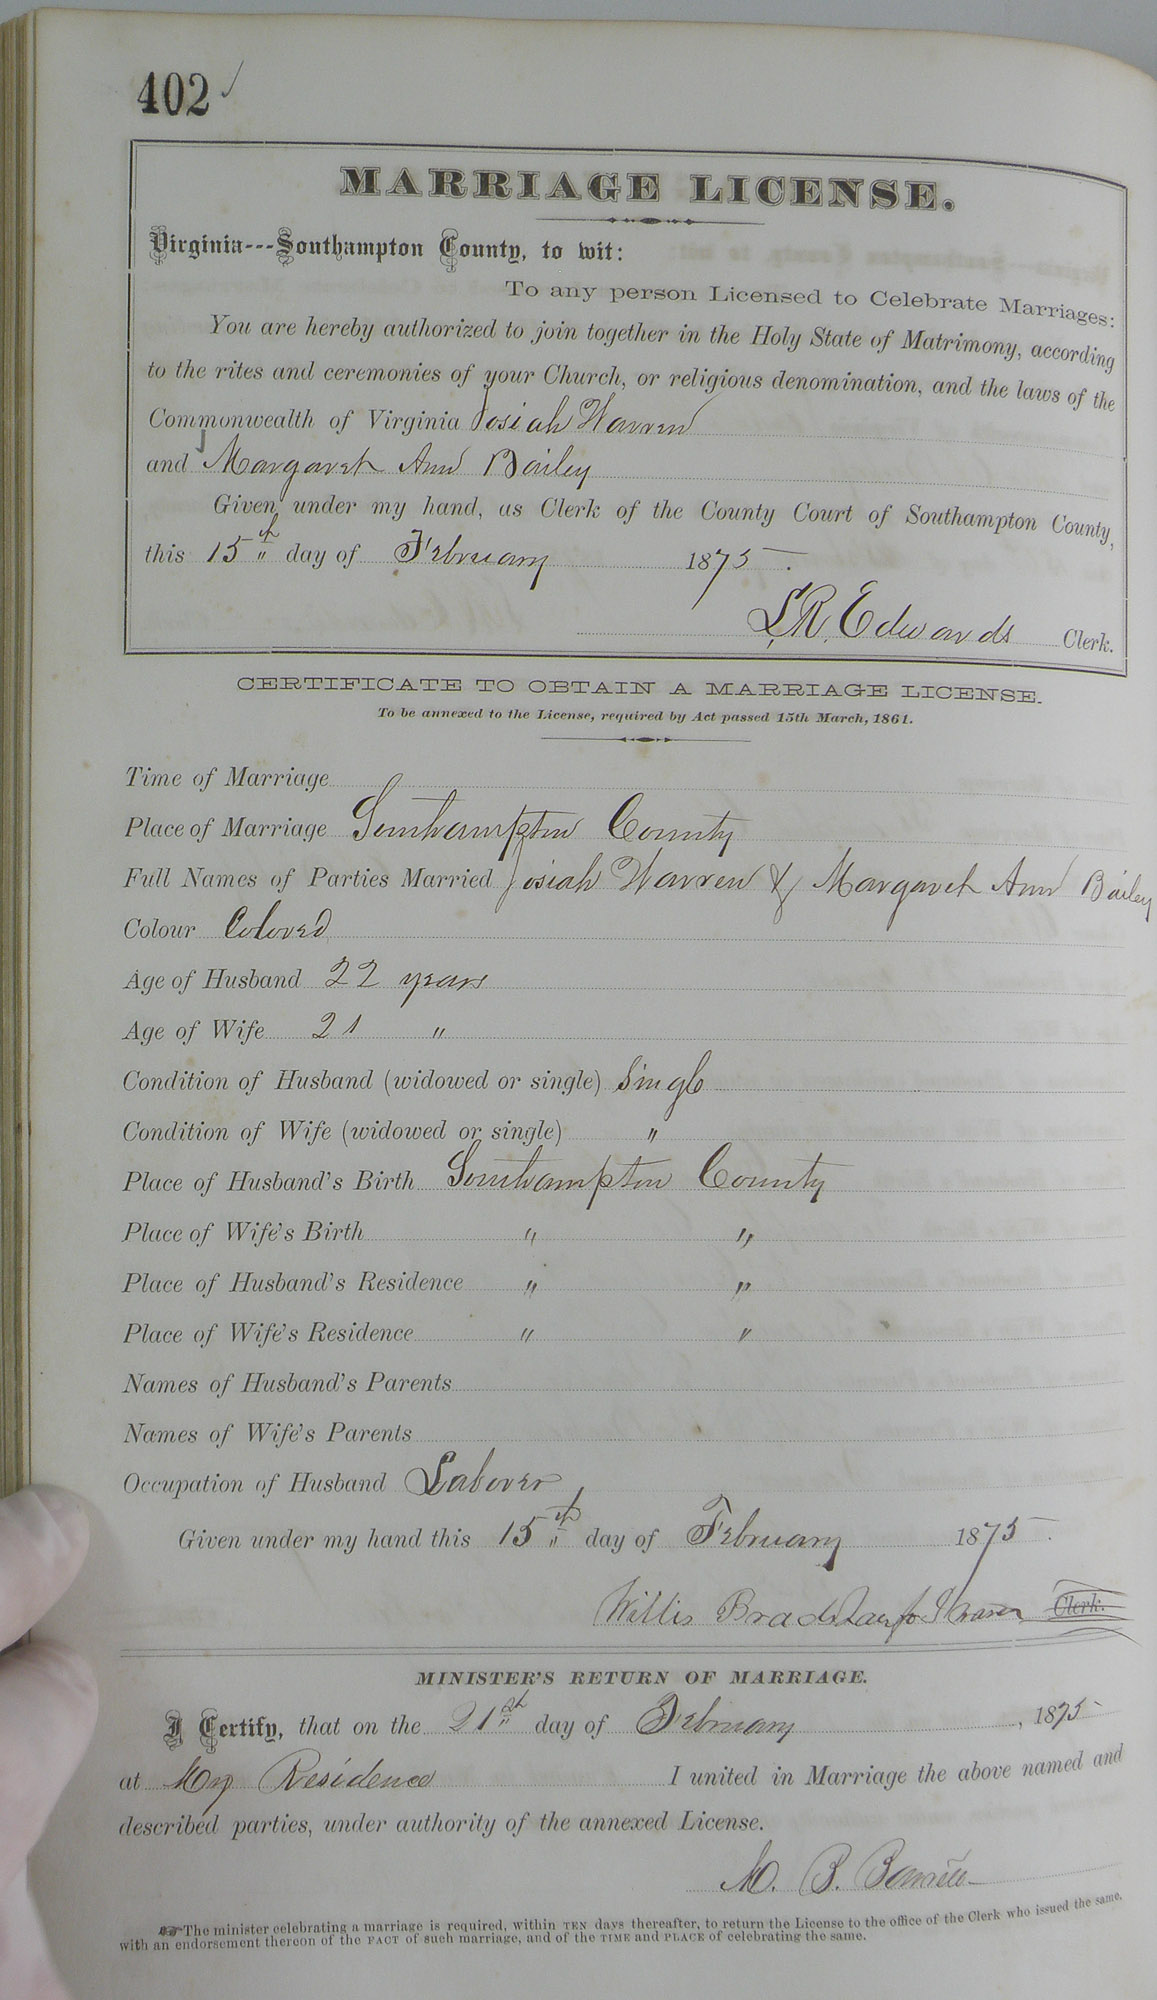 402
MARRIAGE LICENSE.
Virginia---Southampton County, to wit:
To any person Licensed to Celebrate Marriages:
You are hereby authorized to join together in the Holy State of Matrimony, according
to the rites and ceremonies of your Church, or religious denomination, and the laws of the
Commonwealth of Virginia Josiah Warren
and Margaret Ann Bailey
Given under my hand, as Clerk of the County Court of Southampton County,
this 15th day of February 1875.
L R Edwards Clerk.
CERTIFICATE TO OBTAIN A MARRIAGE LICENSE.
To be annexed to the License, required by Act passed 15th March, 1861.
Time of Marriage
Place of Marriage Southampton County
Full Names of Parties Married Josiah Warren & Margaret Ann Bailey
Colour Colored
Age of Husband 22 years
Age of Wife 21 "
Condition of Husband (widowed or single) Single
Condition of Wife (widowed or single) "
Place of Husband's Birth Southampton County
Place of Wife's Birth " "
Place of Husband's Residence " "
Place of Wife's Residence " "
Names of Husband's Parents
Names of Wife's Parents
Occupation of Husband Laborer
Given under my hand this 15th day of February 1875.
Willis Clerk.
MINISTER'S RETURN OF MARRIAGE.
I Certify, that on the 21st day of February, 1875
at My Residence I united in Marriage the above named and
described parties, under authority of the annexed License.
M. B.
The minister celebrating a marriage is required, within TEN days thereafter, to return the License to the office of the Clerk who issued the same,
with an endorsement thereon of the FACT of such marriage, and of the TIME and PLACE of celebrating the same.